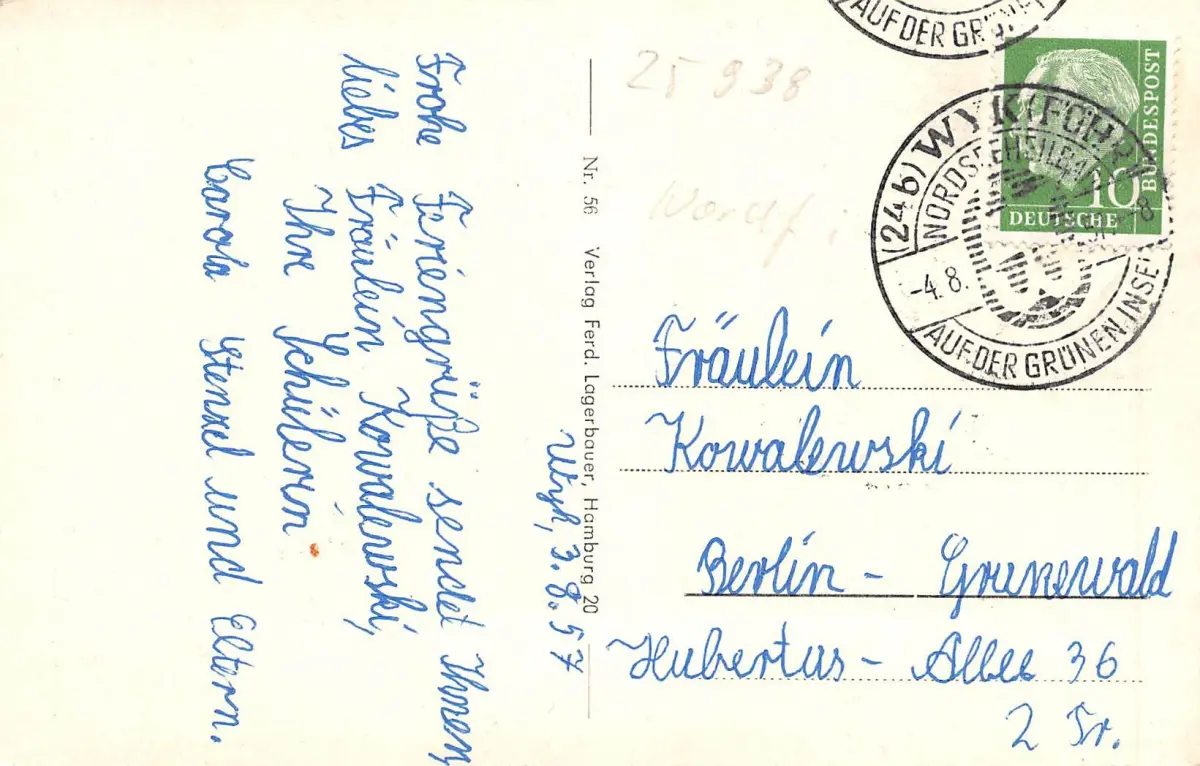 AUF DER GRÜNEN
25 938
BUNDESPOST
10
DEUTSCHE
(24b) WYK (FÖHR)
NORDSEEHEILBAD
-4.8.
AUF DER GRÜNEN INSEL
Wyk, 3.8.57
Frohe Feriengrüße sendet Ihnen,
liebes Fräulein Kowalewski,
Ihre Schülerin
Carola Stenzel und Eltern.
Nr. 56 Verlag Ferd. Lagerbauer, Hamburg 20
Fräulein
Kowalewski
Berlin - Grunewald
Hubertus - Allee 36
2 Tr.